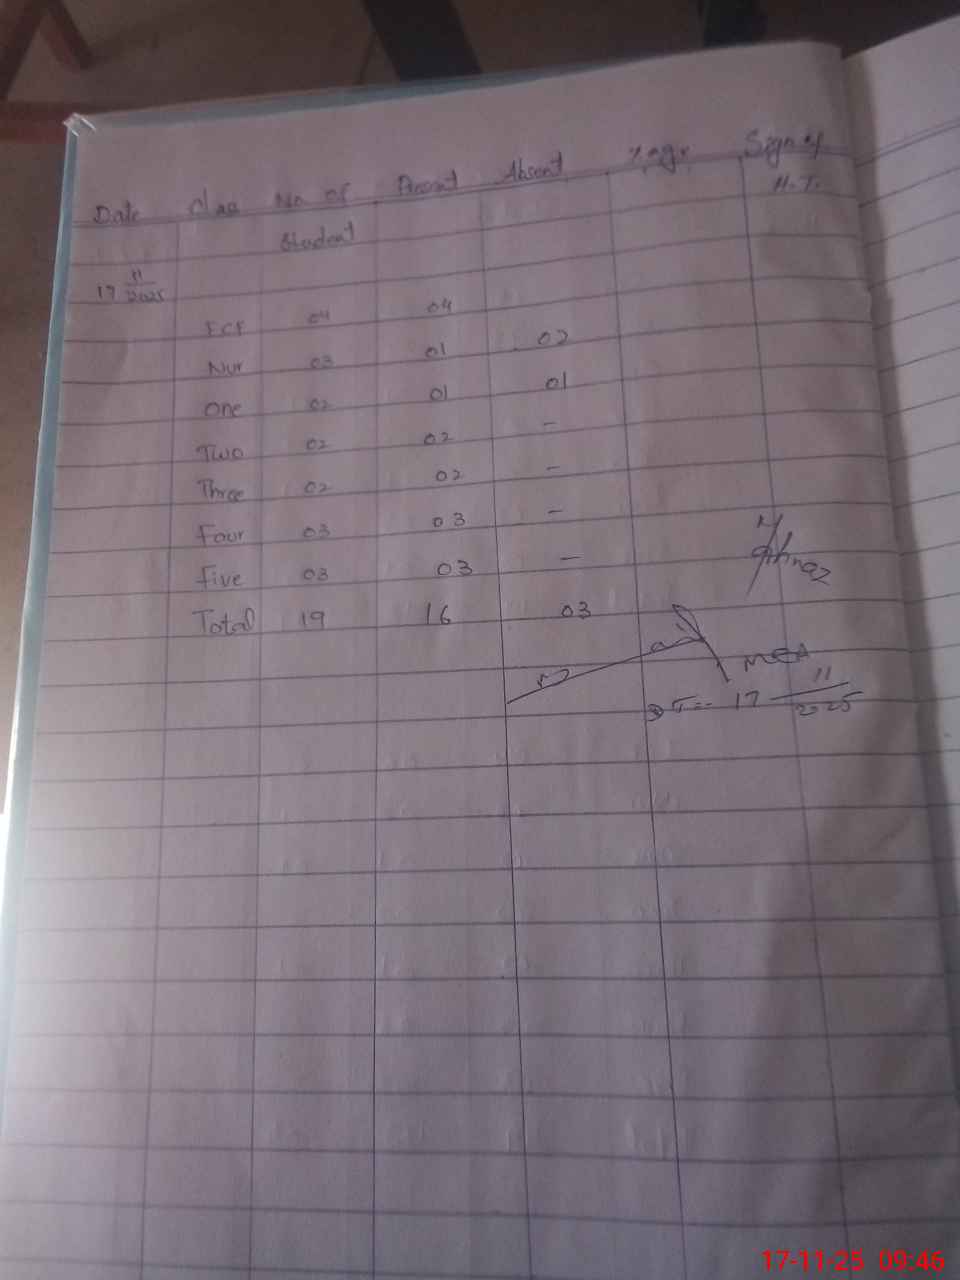 Date Class No of Present Absent %age Sign of
Student H.T.
17 11/2025
ECE 04 04
Nur 03 01 02
One 02 01 01
Two 02 02 -
Three 02 02 -
Four 03 03 -
Five 03 03 -
Total 19 16 03
MEA
17 11/2025
17-11-25 09:46